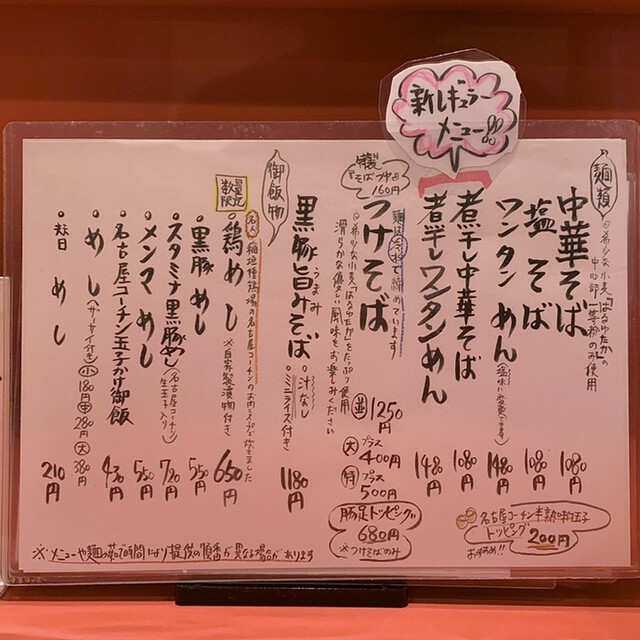 新レギュラー
メニュー!!
麺類
◎希少な小麦「はるゆたか」の
中心部一等粉のみ使用
中華そば 1080円
塩そば 1080円
ワンタンめん 1480円
(塩味に変更できます)
煮干し中華そば 1080円
煮干しワンタンめん 1480円
麺は冷水で締めています
つけそば
特製
160円
◎希少な小麦「はるゆたか」をたっぷり使用
滑らかな優さしい風味をお楽しみください
並 1250円
大 プラス400円
特 プラス500円
黒豚旨みそば 1180円
うまみ
・汁なし
・ミニライス付き
御飯物
数量限定
・鶏めし 650円
※自家製漬物付き
・黒豚めし 550円
・スタミナ黒豚めし 720円
(名古屋コーチン生玉子入り)
・メンマめし 550円
・名古屋コーチン玉子かけ御飯 430円
・めし(ザーサイ付き) 小180円 中280円 大380円
めし 210円
豚足トッピング
680円
※つけそばのみ
名古屋コーチン半熟味玉子
トッピング 200円
おすすめ!!
※メニューや麺の茹で時間により提供の順番が異なる場合があります